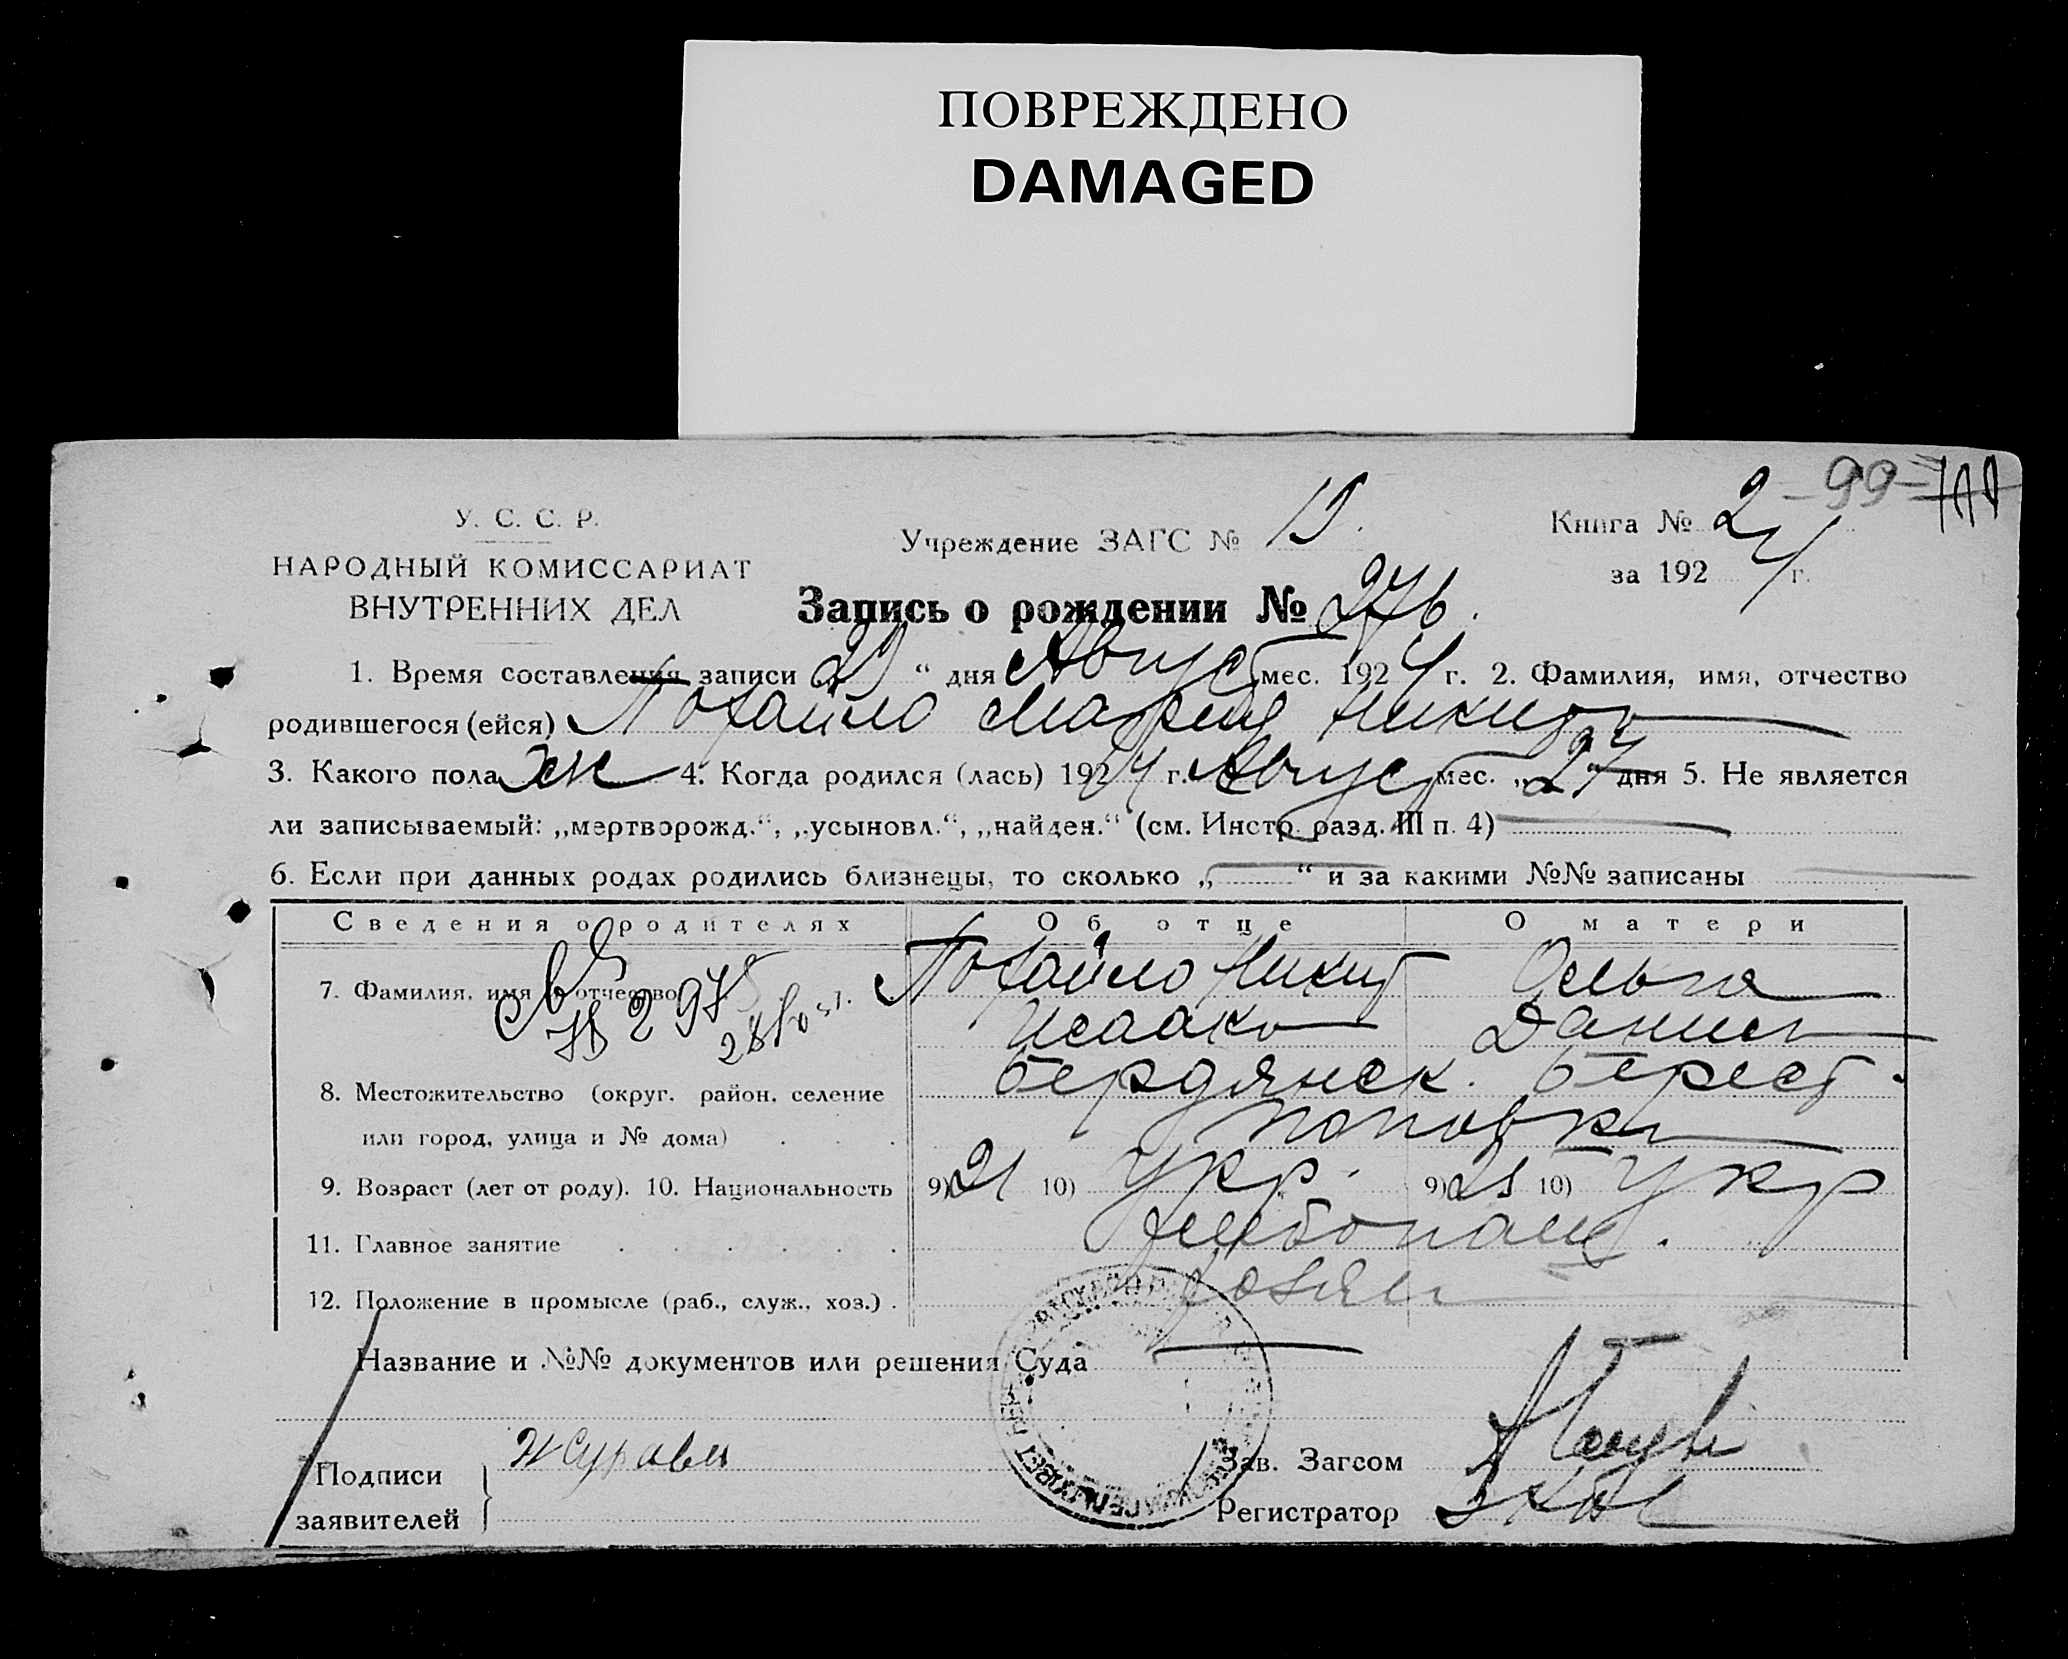 ПОВРЕЖДЕНО
DAMAGED
2 - 99 -
У. С. С. Р.
НАРОДНЫЙ КОМИССАРИАТ
ВНУТРЕННИХ ДЕЛ
Учреждение ЗАГС №
Книга № 2
за 1924 г.
Запись о рождении № 276.
1. Время составления записи 29 “ дня Август мес. 1924 г. 2. Фамилия, имя, отчество
родившегося (ейся) Мария Никито
3. Какого пола жк 4. Когда родился (лась) 1924 г. Август мес. „27 дня 5. Не является
ли записываемый: „мертворожд.“, „усыновл.“, „найден.“ (см. Инстр. разд. III п. 4)
6. Если при данных родах родились близнецы, то сколько „ “ и за какими №№ записаны
Сведения о родителях Об отце О матери
7. Фамилия, имя и отчество Никит Ольга
Исаако Данил
8. Местожительство (округ, район, селение Бердянск. Берест.
или город, улица и № дома) Поповка
9. Возраст (лет от роду). 10. Национальность 9) 21 10) Укр. 9) 21 10) Укр
11. Главное занятие Хлебопаш.
12. Положение в промысле (раб., служ., хоз.) Хозяи
Название и №№ документов или решения Суда
Подписи заявителей Журавл
Зав. Загсом
Регистратор